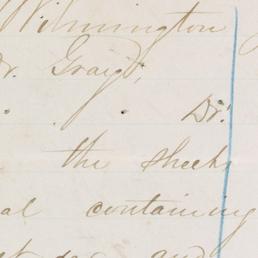 Wilmington
Dr. Graig,
Dr.
the sheets
al containing
and